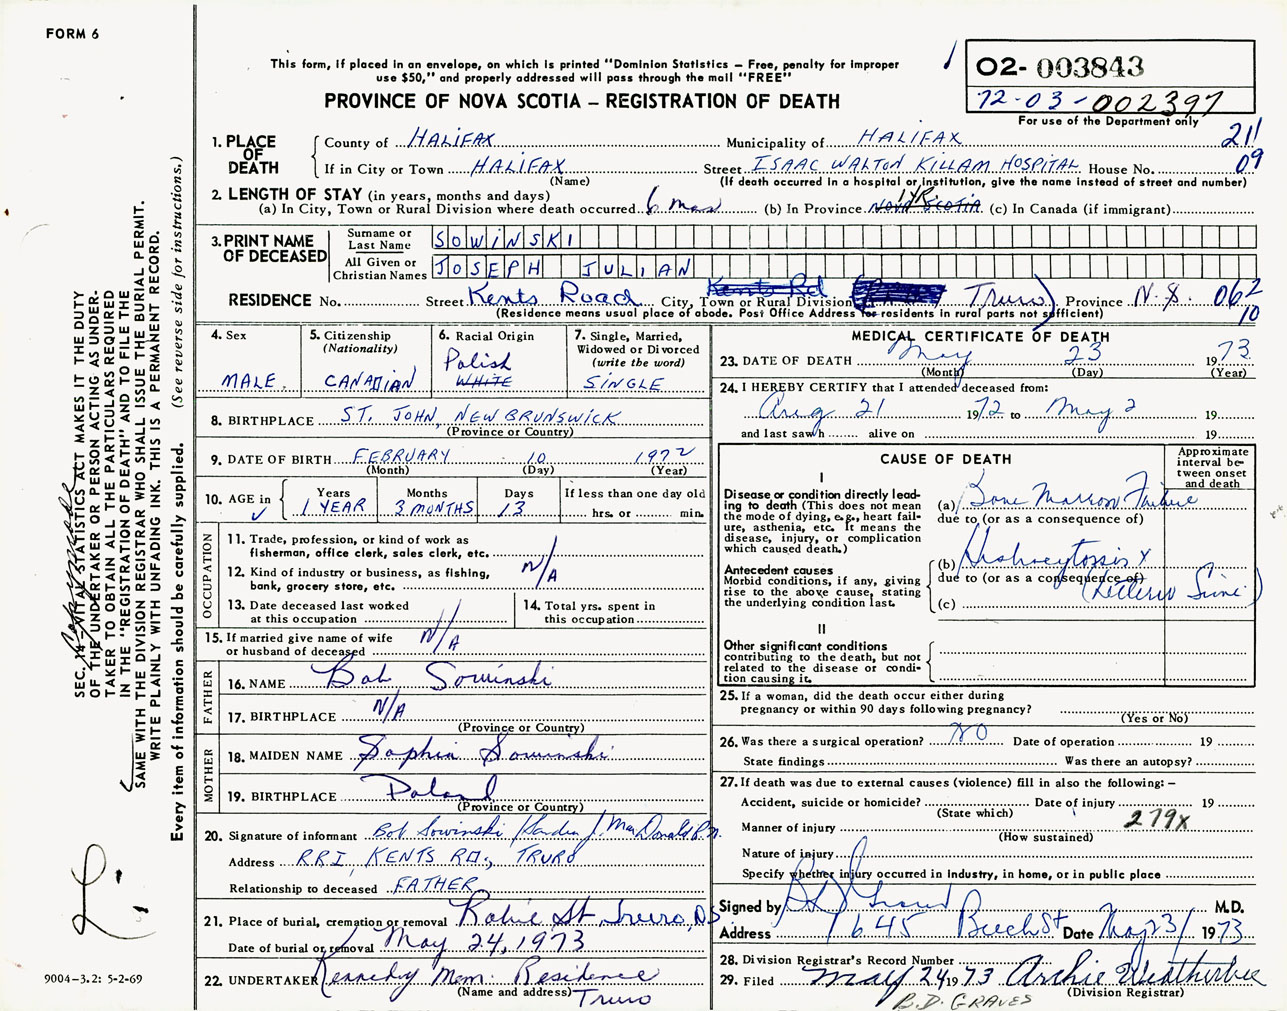 FORM 6
This form, if placed in an envelope, on which is printed "Dominion Statistics – Free, penalty for improper
use $50," and properly addressed will pass through the mail "FREE"
PROVINCE OF NOVA SCOTIA – REGISTRATION OF DEATH
02- 003843
72-03-002397
For use of the Department only
211
09
1. PLACE OF DEATH
County of HALIFAX Municipality of HALIFAX
If in City or Town HALIFAX Street ISAAC WALTON KILLAM HOSPITAL House No.
(Name) (If death occurred in a hospital or institution, give the name instead of street and number)
2. LENGTH OF STAY (in years, months and days)
(a) In City, Town or Rural Division where death occurred 6 mos (b) In Province NOVA SCOTIA 1 YR (c) In Canada (if immigrant)
3. PRINT NAME OF DECEASED
Surname or Last Name SOWINSKI
All Given or Christian Names JOSEPH JULIAN
RESIDENCE No. Street Kents Road City, Town or Rural Division Kents Rd (Truro) Province N.S. 062
10
(Residence means usual place of abode. Post Office Address for residents in rural parts not sufficient)
4. Sex
MALE
5. Citizenship
(Nationality)
CANADIAN
6. Racial Origin
Polish
WHITE
7. Single, Married,
Widowed or Divorced
(write the word)
SINGLE
8. BIRTHPLACE ST. JOHN, NEW BRUNSWICK
(Province or Country)
9. DATE OF BIRTH FEBRUARY 10 1972
(Month) (Day) (Year)
10. AGE in
Years Months Days If less than one day old
1 YEAR 3 MONTHS 13 hrs. or min.
OCCUPATION
11. Trade, profession, or kind of work as
fisherman, office clerk, sales clerk, etc.
12. Kind of industry or business, as fishing,
bank, grocery store, etc. N/A
13. Date deceased last worked
at this occupation
14. Total yrs. spent in
this occupation
15. If married give name of wife
or husband of deceased N/A
FATHER
16. NAME Bob Sowinski
17. BIRTHPLACE N/A
(Province or Country)
MOTHER
18. MAIDEN NAME Sophia Sowinski
19. BIRTHPLACE Poland
(Province or Country)
20. Signature of informant Bob Sowinski / J. MacDonald R.N.
Address RR1, KENTS RD., TRURO
Relationship to deceased FATHER
21. Place of burial, cremation or removal Robie St. Truro, NS
Date of burial or removal May 24, 1973
22. UNDERTAKER Kennedy Mem. Residence
(Name and address) Truro
MEDICAL CERTIFICATE OF DEATH
23. DATE OF DEATH May 23 1973
(Month) (Day) (Year)
24. I HEREBY CERTIFY that I attended deceased from:
Aug 21 1972 to May 2 19
and last saw h alive on 19
CAUSE OF DEATH
Approximate
interval be-
tween onset
and death
I
Disease or condition directly lead-
ing to death (This does not mean
the mode of dying, e.g., heart fail-
ure, asthenia, etc. It means the
disease, injury, or complication
which caused death.)
(a) Bone Marrow Failure
due to (or as a consequence of)
Antecedent causes
Morbid conditions, if any, giving
rise to the above cause, stating
the underlying condition last.
(b) Histiocytosis X
due to (or as a consequence of)
(Letterer Siwe)
(c)
II
Other significant conditions
contributing to the death, but not
related to the disease or condi-
tion causing it.
25. If a woman, did the death occur either during
pregnancy or within 90 days following pregnancy?
(Yes or No)
26. Was there a surgical operation? NO Date of operation 19
State findings Was there an autopsy?
27. If death was due to external causes (violence) fill in also the following: –
Accident, suicide or homicide? Date of injury 19
(State which)
Manner of injury 279x
(How sustained)
Nature of injury
Specify whether injury occurred in industry, in home, or in public place
Signed by M.D.
Address 1645 Beech St Date May 23/ 1973
28. Division Registrar's Record Number
29. Filed May 24 1973 Archie Weatherbee
(Division Registrar)
B.D. GRAVES
SEC. 14 – VITAL STATISTICS ACT MAKES IT THE DUTY
OF THE UNDERTAKER OR PERSON ACTING AS UNDER-
TAKER TO OBTAIN ALL THE PARTICULARS REQUIRED
IN THE "REGISTRATION OF DEATH" AND TO FILE THE
SAME WITH THE DIVISION REGISTRAR WHO SHALL ISSUE THE BURIAL PERMIT.
WRITE PLAINLY WITH UNFADING INK. THIS IS A PERMANENT RECORD.
Every item of information should be carefully supplied. (See reverse side for instructions.)
9004–3.2: 5-2-69